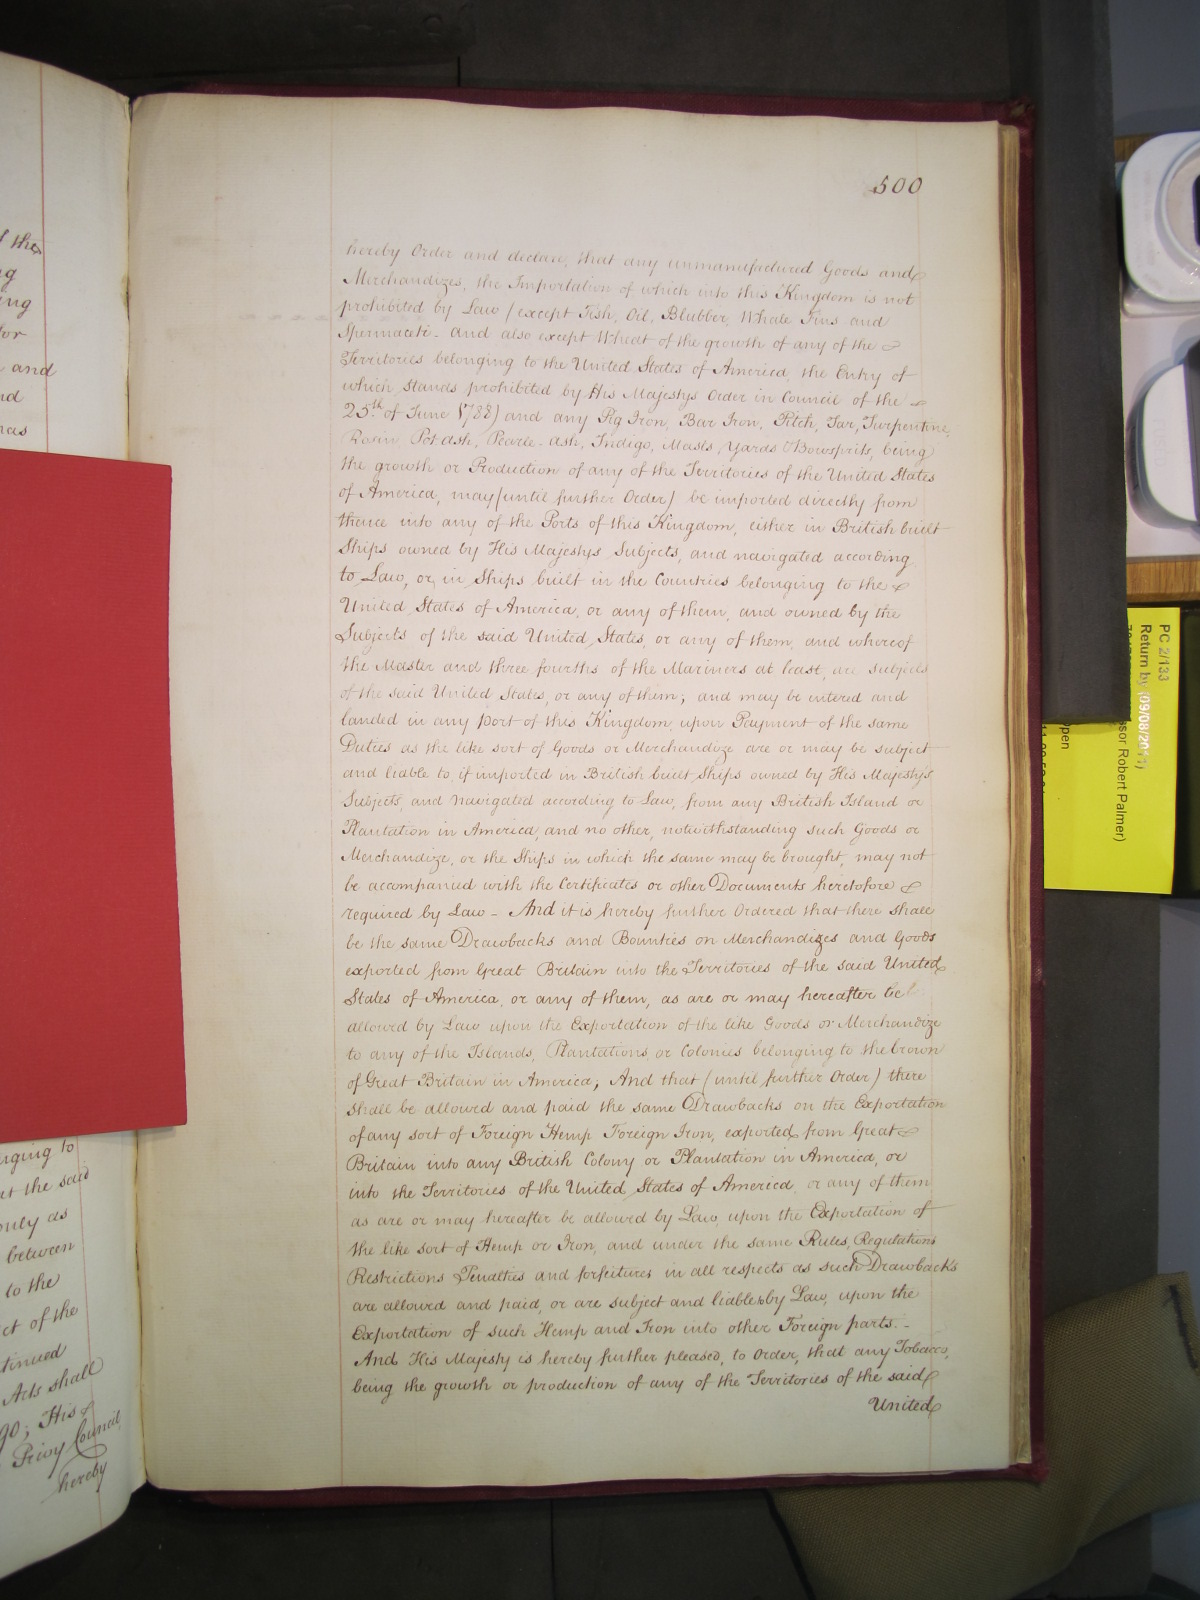 500
hereby Order and declare, that any unmanufactured Goods and
Merchandizes, the Importation of which into this Kingdom is not
prohibited by Law (except Fish, Oil, Blubber, Whale Fins and
Spermaceti - and also except Wheat of the growth of any of the
Territories belonging to the United States of America, the Entry of
which stands prohibited by His Majestys Order in Council of the
25th of June 1788) and any Pig Iron, Bar Iron, Pitch, Tar, Turpentine,
Rosin, Pot ash, Pearle-ash, Indigo, Masts, Yards & Bowsprits, being
the growth or Production of any of the Territories of the United States
of America, may (until further Order) be imported directly from
thence into any of the Ports of this Kingdom, either in British built
Ships owned by His Majestys Subjects, and navigated according
to Law, or in Ships built in the Countries belonging to the
United States of America, or any of them, and owned by the
Subjects of the said United States, or any of them, and whereof
the Master and three fourths of the Mariners at least, are subjects
of the said United States, or any of them; and may be entered and
landed in any port of this Kingdom, upon Payment of the same
Duties as the like sort of Goods or Merchandize are or may be subject
and liable to if imported in British built Ships owned by His Majesty's
Subjects, and navigated according to Law, from any British Island or
Plantation in America, and no other, notwithstanding such Goods or
Merchandize, or the Ships in which the same may be brought, may not
be accompanied with the Certificates or other Documents heretofore
required by Law - And it is hereby further Ordered that there shall
be the same Drawbacks and Bounties on Merchandizes and Goods
exported from Great Britain into the Territories of the said United
States of America, or any of them, as are or may hereafter be
allowed by Law upon the Exportation of the like Goods or Merchandize
to any of the Islands, Plantations, or Colonies belonging to the Crown
of Great Britain in America; And that (until further Order) there
shall be allowed and paid the same Drawbacks on the Exportation
of any sort of Foreign Hemp Foreign Iron, exported from Great
Britain into any British Colony or Plantation in America, or
into the Territories of the United States of America, or any of them
as are or may hereafter be allowed by Law, upon the Exportation of
the like sort of Hemp or Iron, and under the same Rules, Regulations
Restrictions Penalties and forfeitures in all respects as such Drawbacks
are allowed and paid, or are subject and liable to by Law, upon the
Exportation of such Hemp and Iron into other Foreign parts. -
And His Majesty is hereby further pleased, to Order, that any Tobacco,
being the growth or production of any of the Territories of the said
United
the
and
to
the said
only as
between
to the
of the
Acts shall
90; His
Privy Council
hereby
PC 2/133
Return by (09/08/2011)
Robert Palmer)